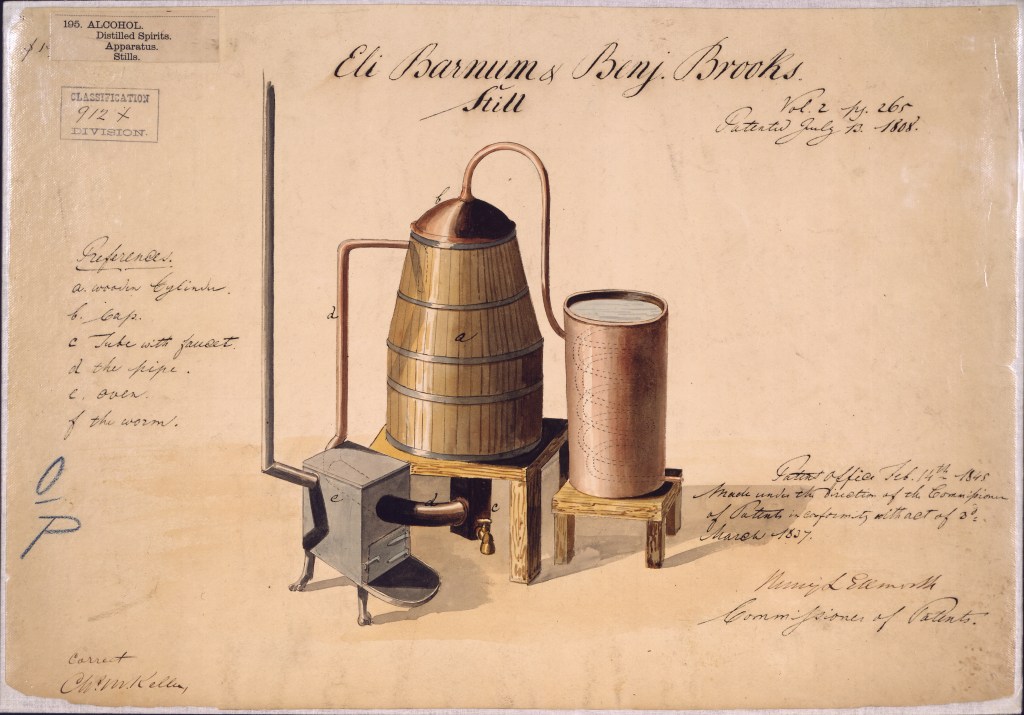 195. ALCOHOL.
Distilled Spirits.
Apparatus.
Stills.
CLASSIFICATION
912 X
DIVISION.
Eli Barnum & Benj. Brooks.
Still
Vol. 2 pg. 265
Patented July 13. 1808.
References.
a. wooden Cylinder.
b. Cap.
c Tube with faucet.
d the pipe.
e. oven.
f the worm.
b
d
a
e
d
c
O.P
Patent Office Feb. 14th 1845
Made under the Direction of the Commissioner
of Patents in conformity with act of 3d.
March 1837.
Henry L Ellsworth
Commissioner of Patents.
Correct
Chs. M. Keller,